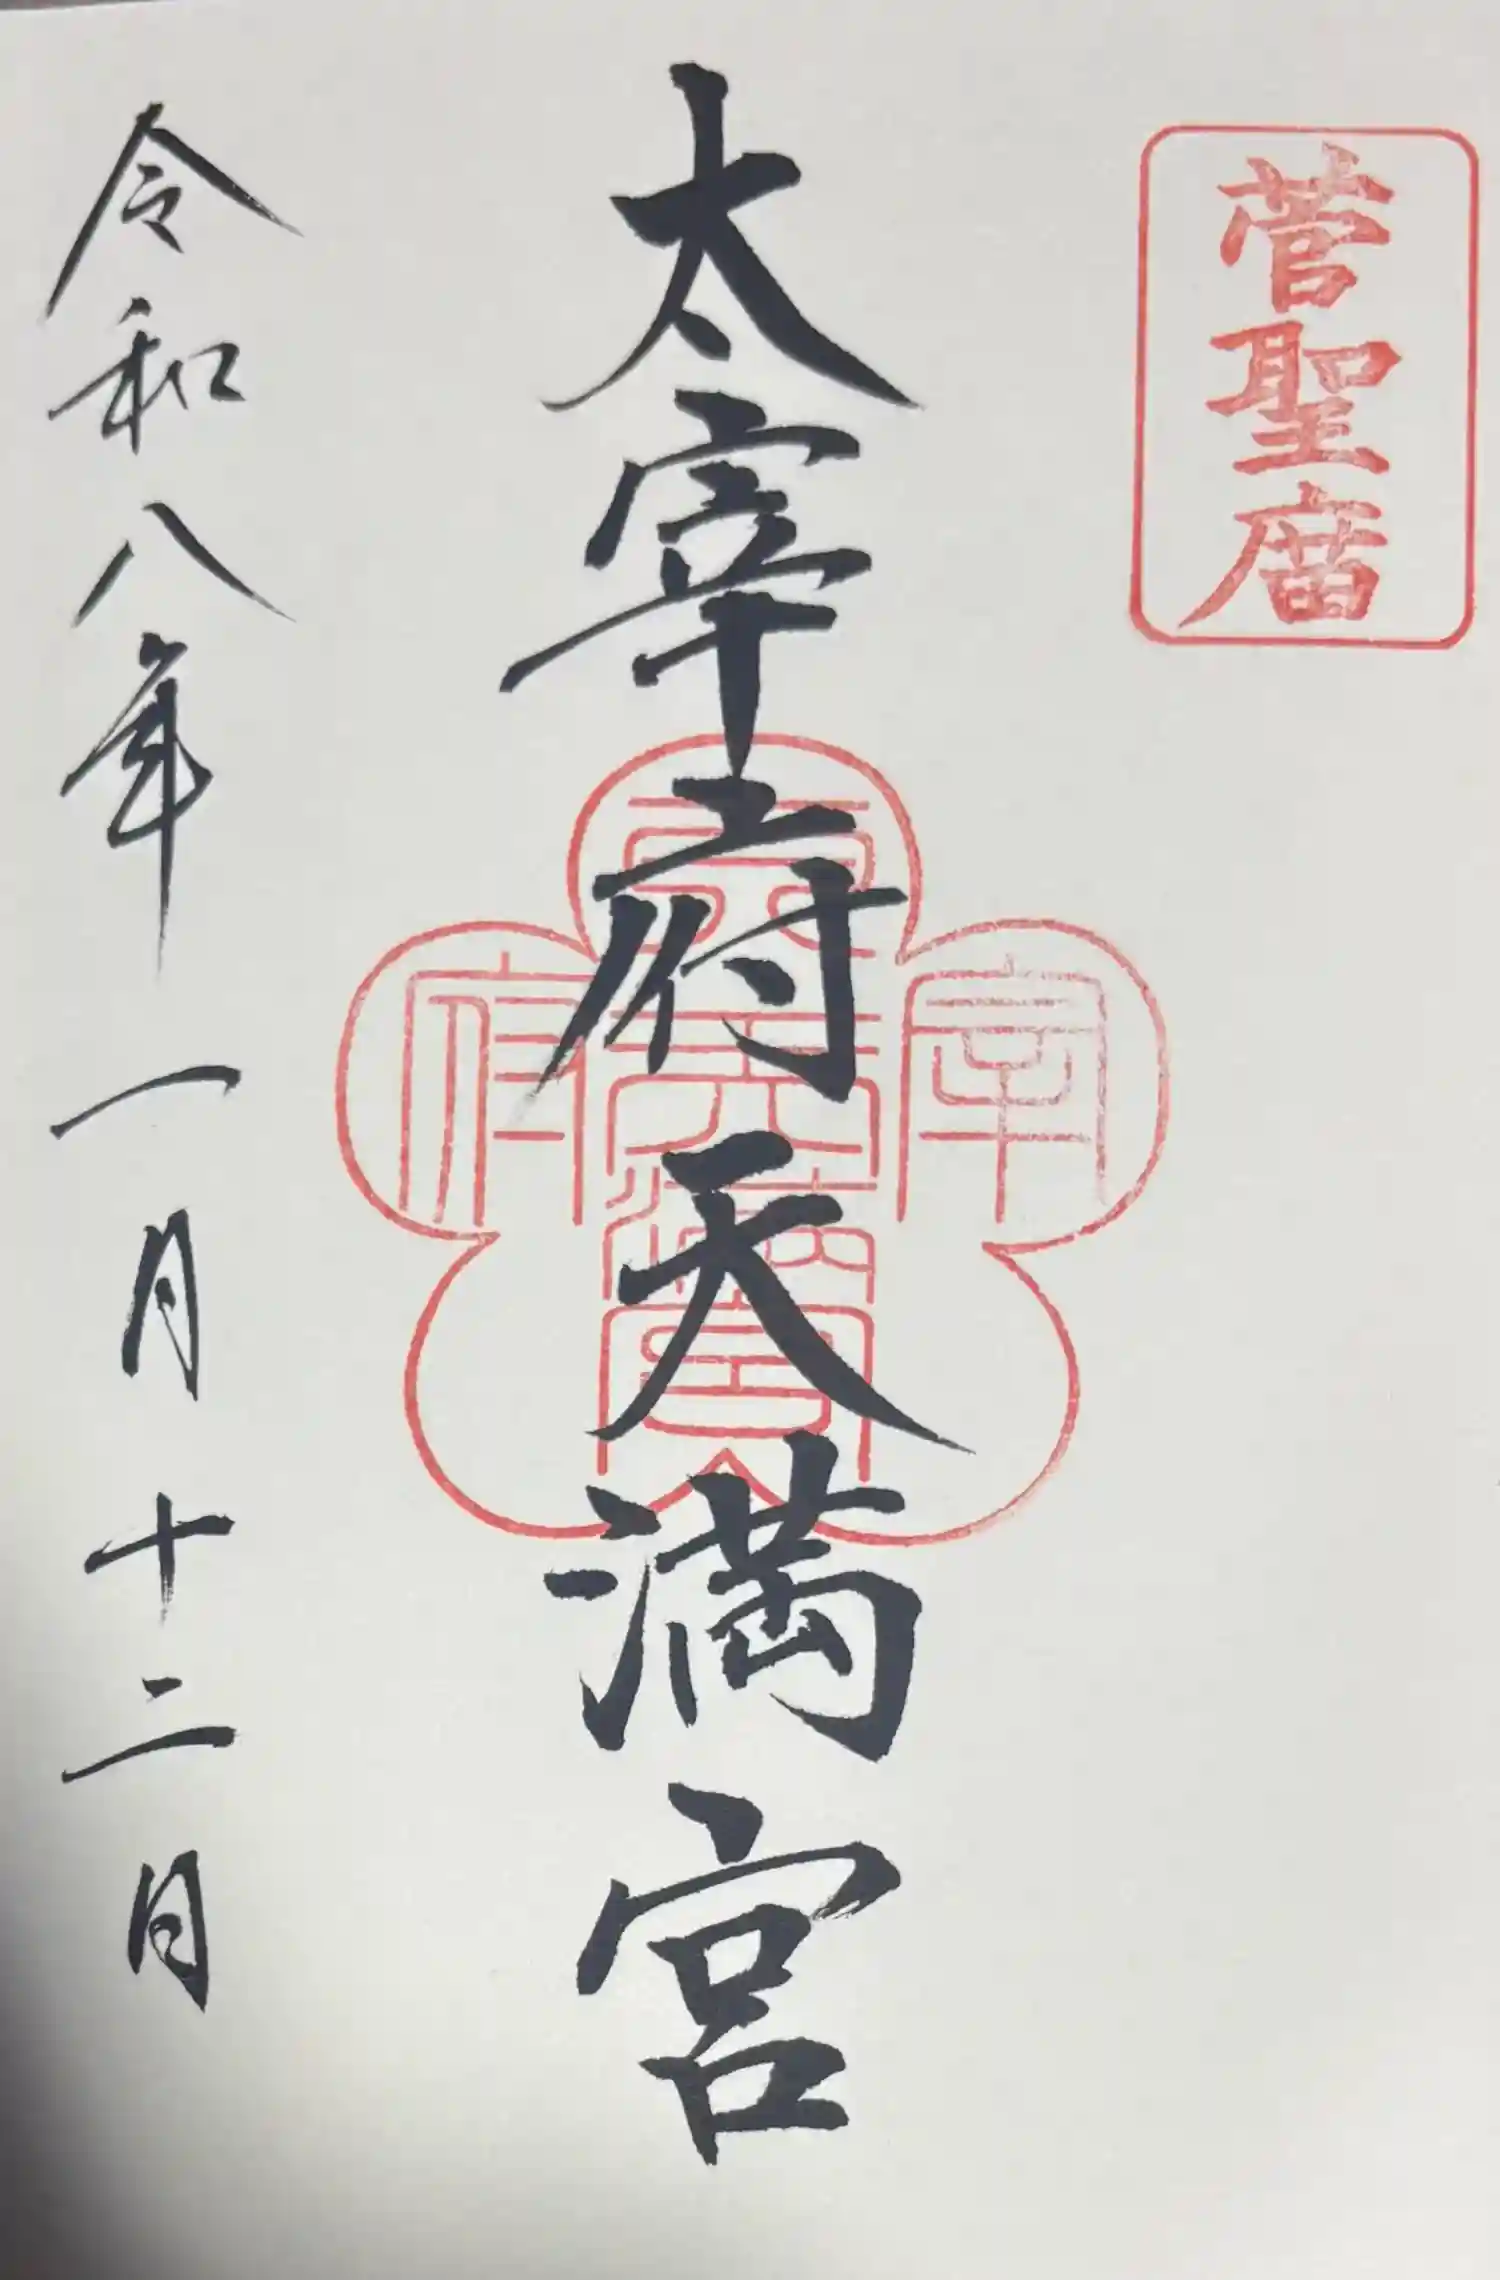 菅聖庿
太宰府天満宮
令和八年一月十二日